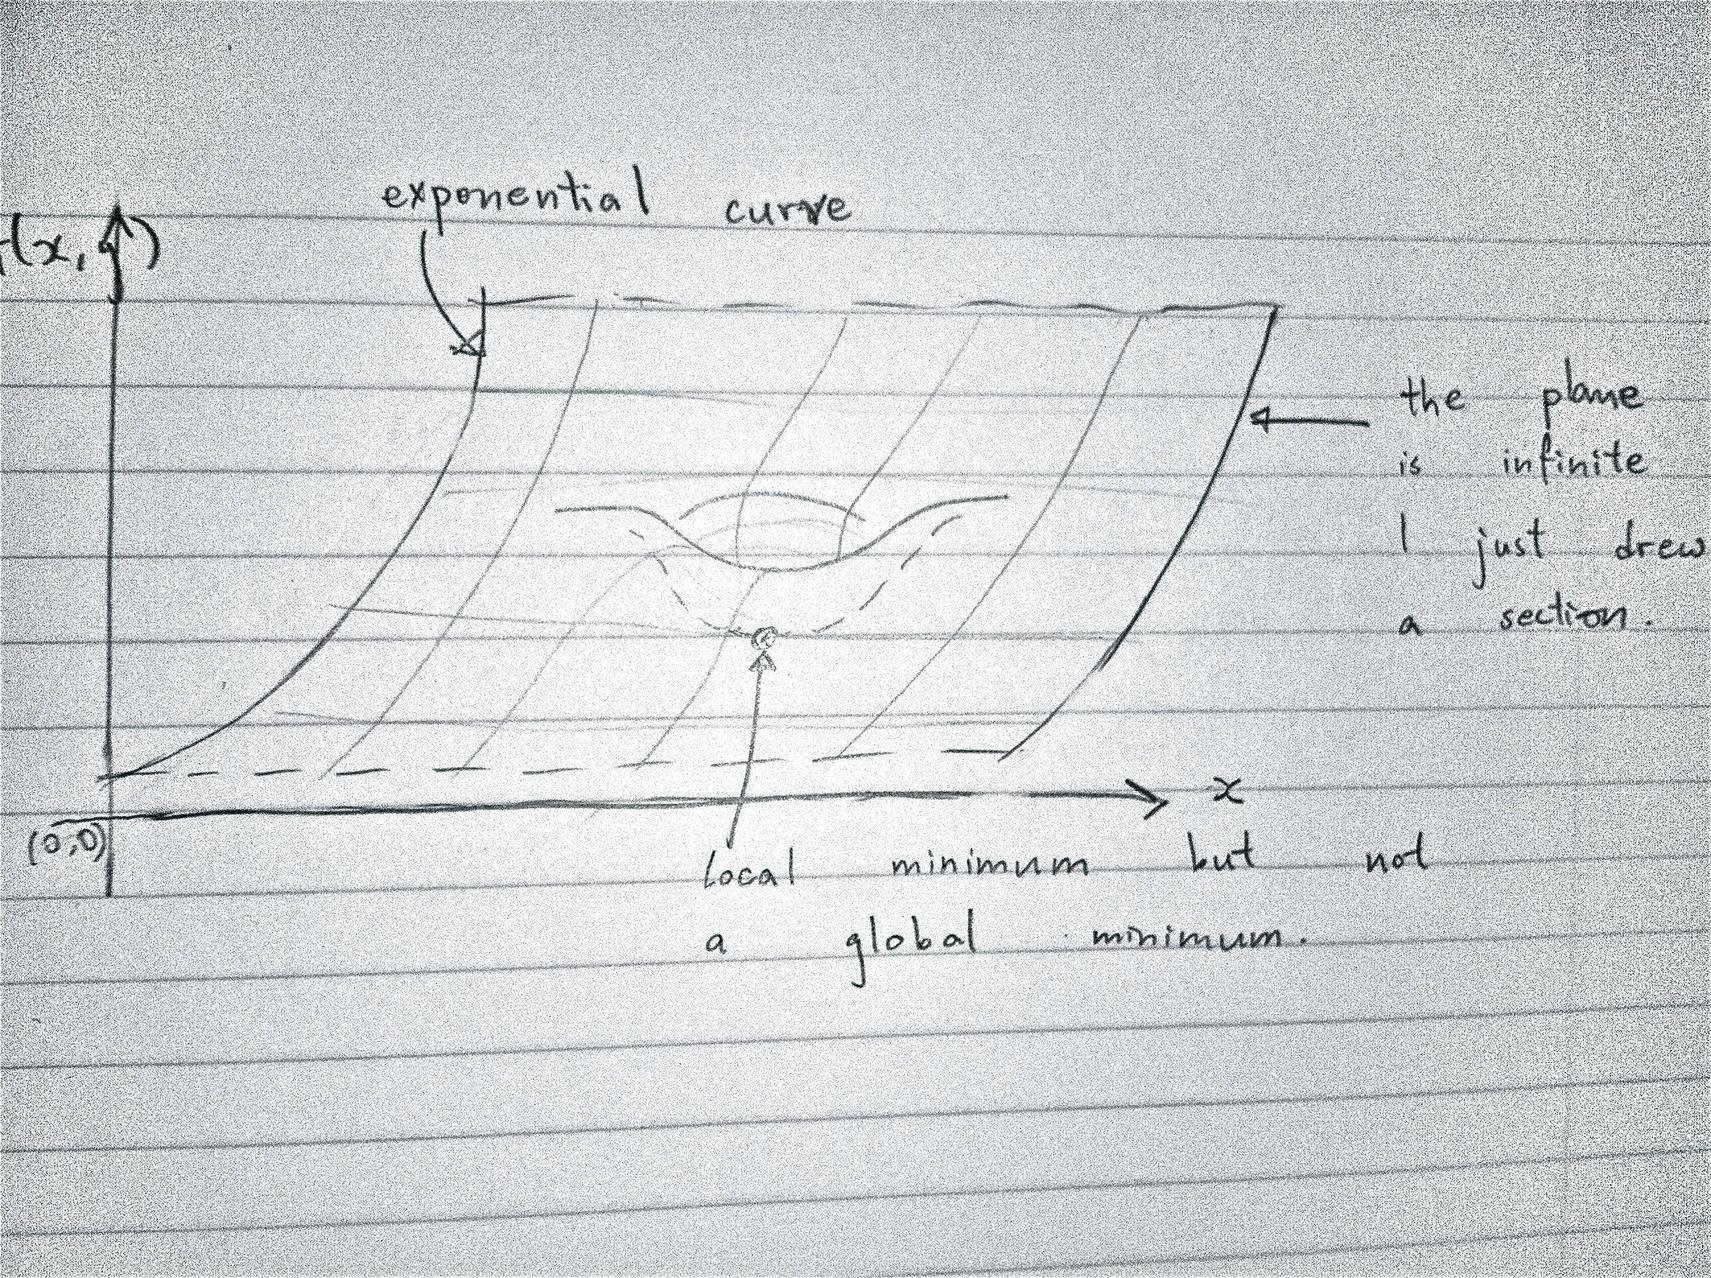 exponential curve
(x, )
the plane
is infinite
I just drew
a section.
x
(0,0)
local minimum but not
a global minimum.